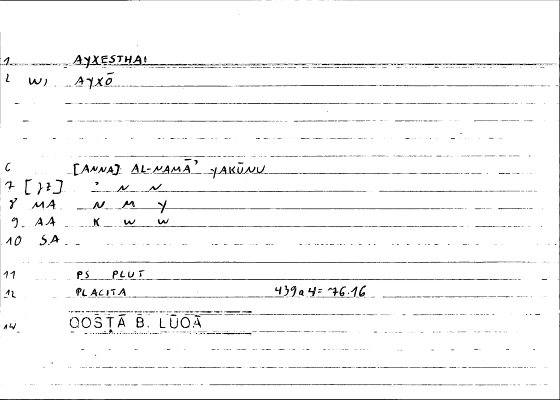 1 AYXESTHAI
2 W1 AYXŌ
6 [ANNA] AL-NAMĀʾ YAKŪNU
7 [ ] ʾ N N
8 MA N M Y
9 AA K W W
10 SA
11 PS PLUT
12 PLACITA 439a4=76.16
14 QOSṬĀ B. LŪQĀ